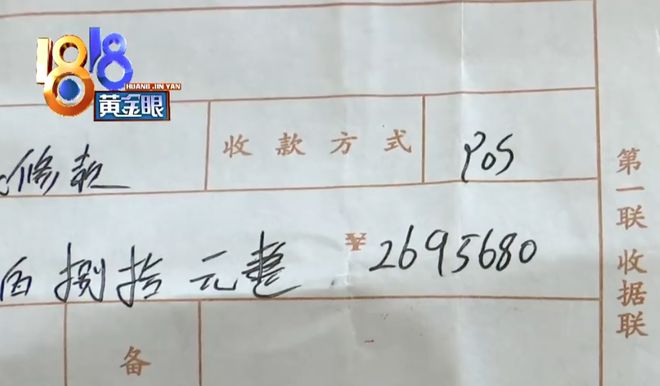 1818
HUANG JIN YAN
黄金眼
修款 收款方式 POS
佰捌拾元整 ¥2695680
备
第一联 收据联